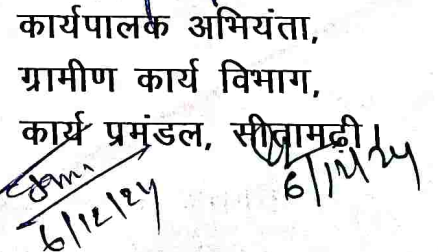 कार्यपालक अभियंता,
ग्रामीण कार्य विभाग,
कार्य प्रमंडल, सीतामढ़ी।
6/12/24
6/12/24